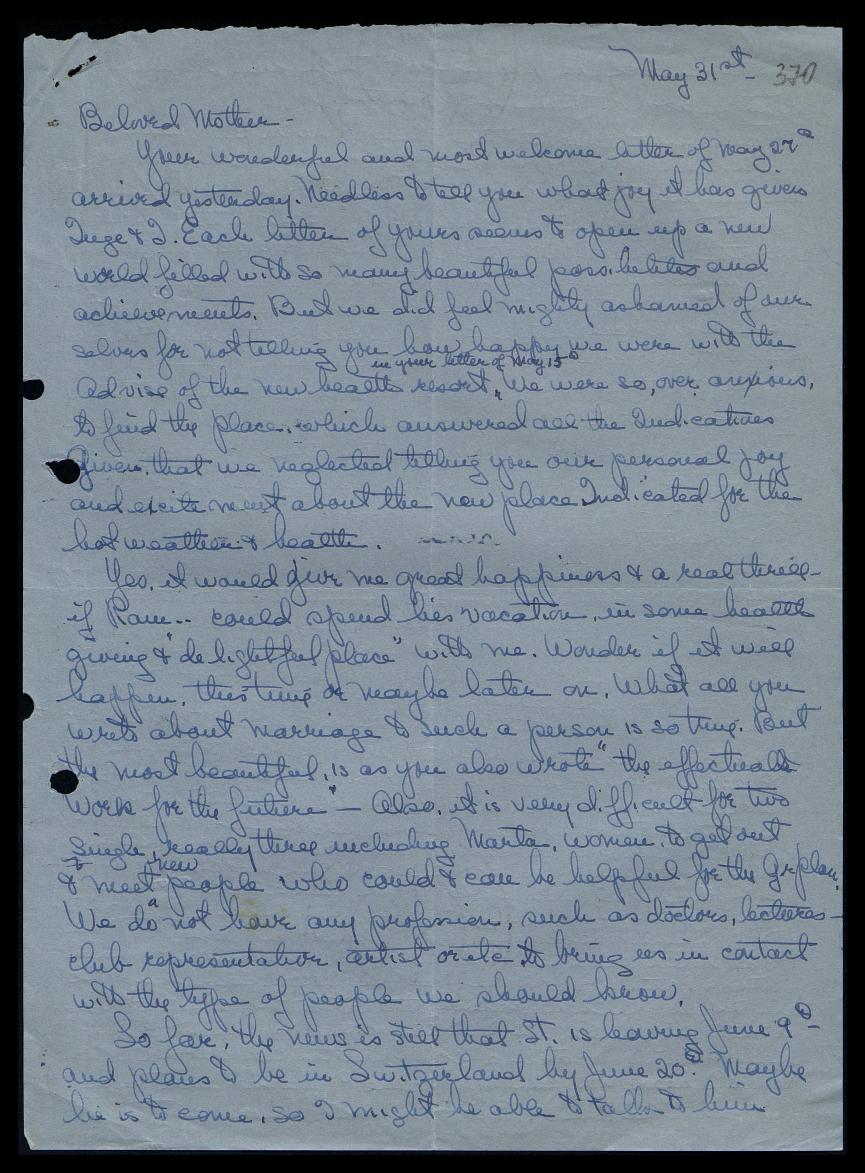 May 31st - 370
Beloved Mother -
Your wonderful and most welcome letter of May 27th
arrived yesterday. Needless to tell you what joy it has given
Inge & I. Each letter of yours seems to open up a new
world filled with so many beautiful possibilities and
achievements. But we did feel mighty ashamed of our
selves for not telling you how happy we were with the
in your letter of May 15th
advise of the new health resort. We were so, over anxious,
to find the place, which answered all the Indications
given, that we neglected telling you our personal joy
and excitement about the new place Indicated for the
hot weather & health.
Yes, it would give me great happiness & a real thrill -
if Ram.. could spend his vacation, in some health
giving & "delightful place" with me. Wonder if it will
happen, this time or maybe later on. What all you
write about marriage to such a person is so true. But
the most beautiful, is as you also wrote "the effectual
work for the future" - Also, it is very difficult for two
single, really three including Marta, women, to get out
to new
& meet people who could & can be helpful for the Gr plan.
We do not have any profession, such as doctors, lectures -
club representative, artist or etc to bring us in contact
with the type of people we should know.
So far, the news is still that St. is leaving June 9th -
and plans to be in Switzerland by June 20th. Maybe
he is to come, so I might be able to talk to him